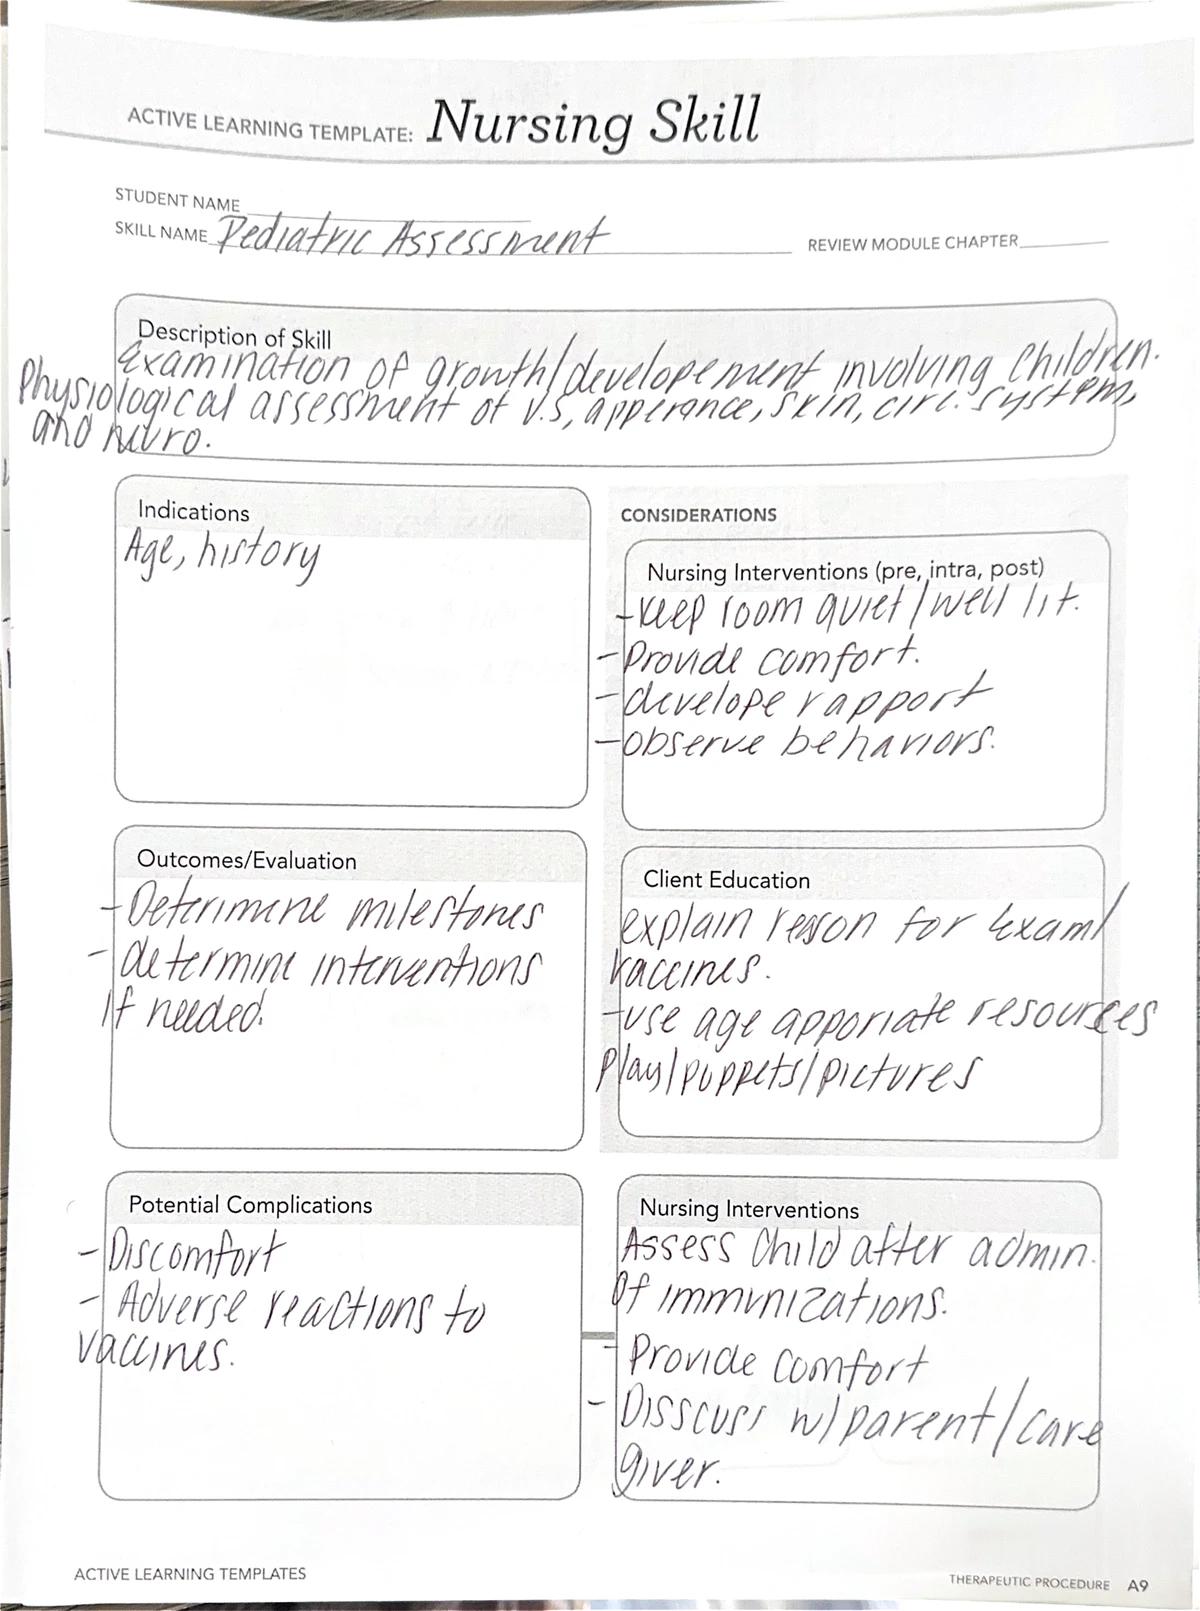 ACTIVE LEARNING TEMPLATE: Nursing Skill
STUDENT NAME
SKILL NAME Pediatric Assessment
REVIEW MODULE CHAPTER
Description of Skill
Examination of growth/developement involving Children.
Physiological assessment of v.s, apperance, skin, circ. system,
and nuro.
Indications
Age, history
CONSIDERATIONS
Nursing Interventions (pre, intra, post)
-Keep room quiet/well lit.
-Provide comfort.
-develope rapport
-observe behaviors.
Outcomes/Evaluation
-Deterimene milestones
-determine interventions
if needed.
Client Education
explain reason for exam/
vaccines.
-use age apporiate resources
play/puppets/pictures
Potential Complications
-Discomfort
- Adverse reactions to
vaccines.
Nursing Interventions
Assess Child after admin.
Of immunizations.
- Provide comfort
- Disscuss w/parent/care
giver.
ACTIVE LEARNING TEMPLATES
THERAPEUTIC PROCEDURE A9